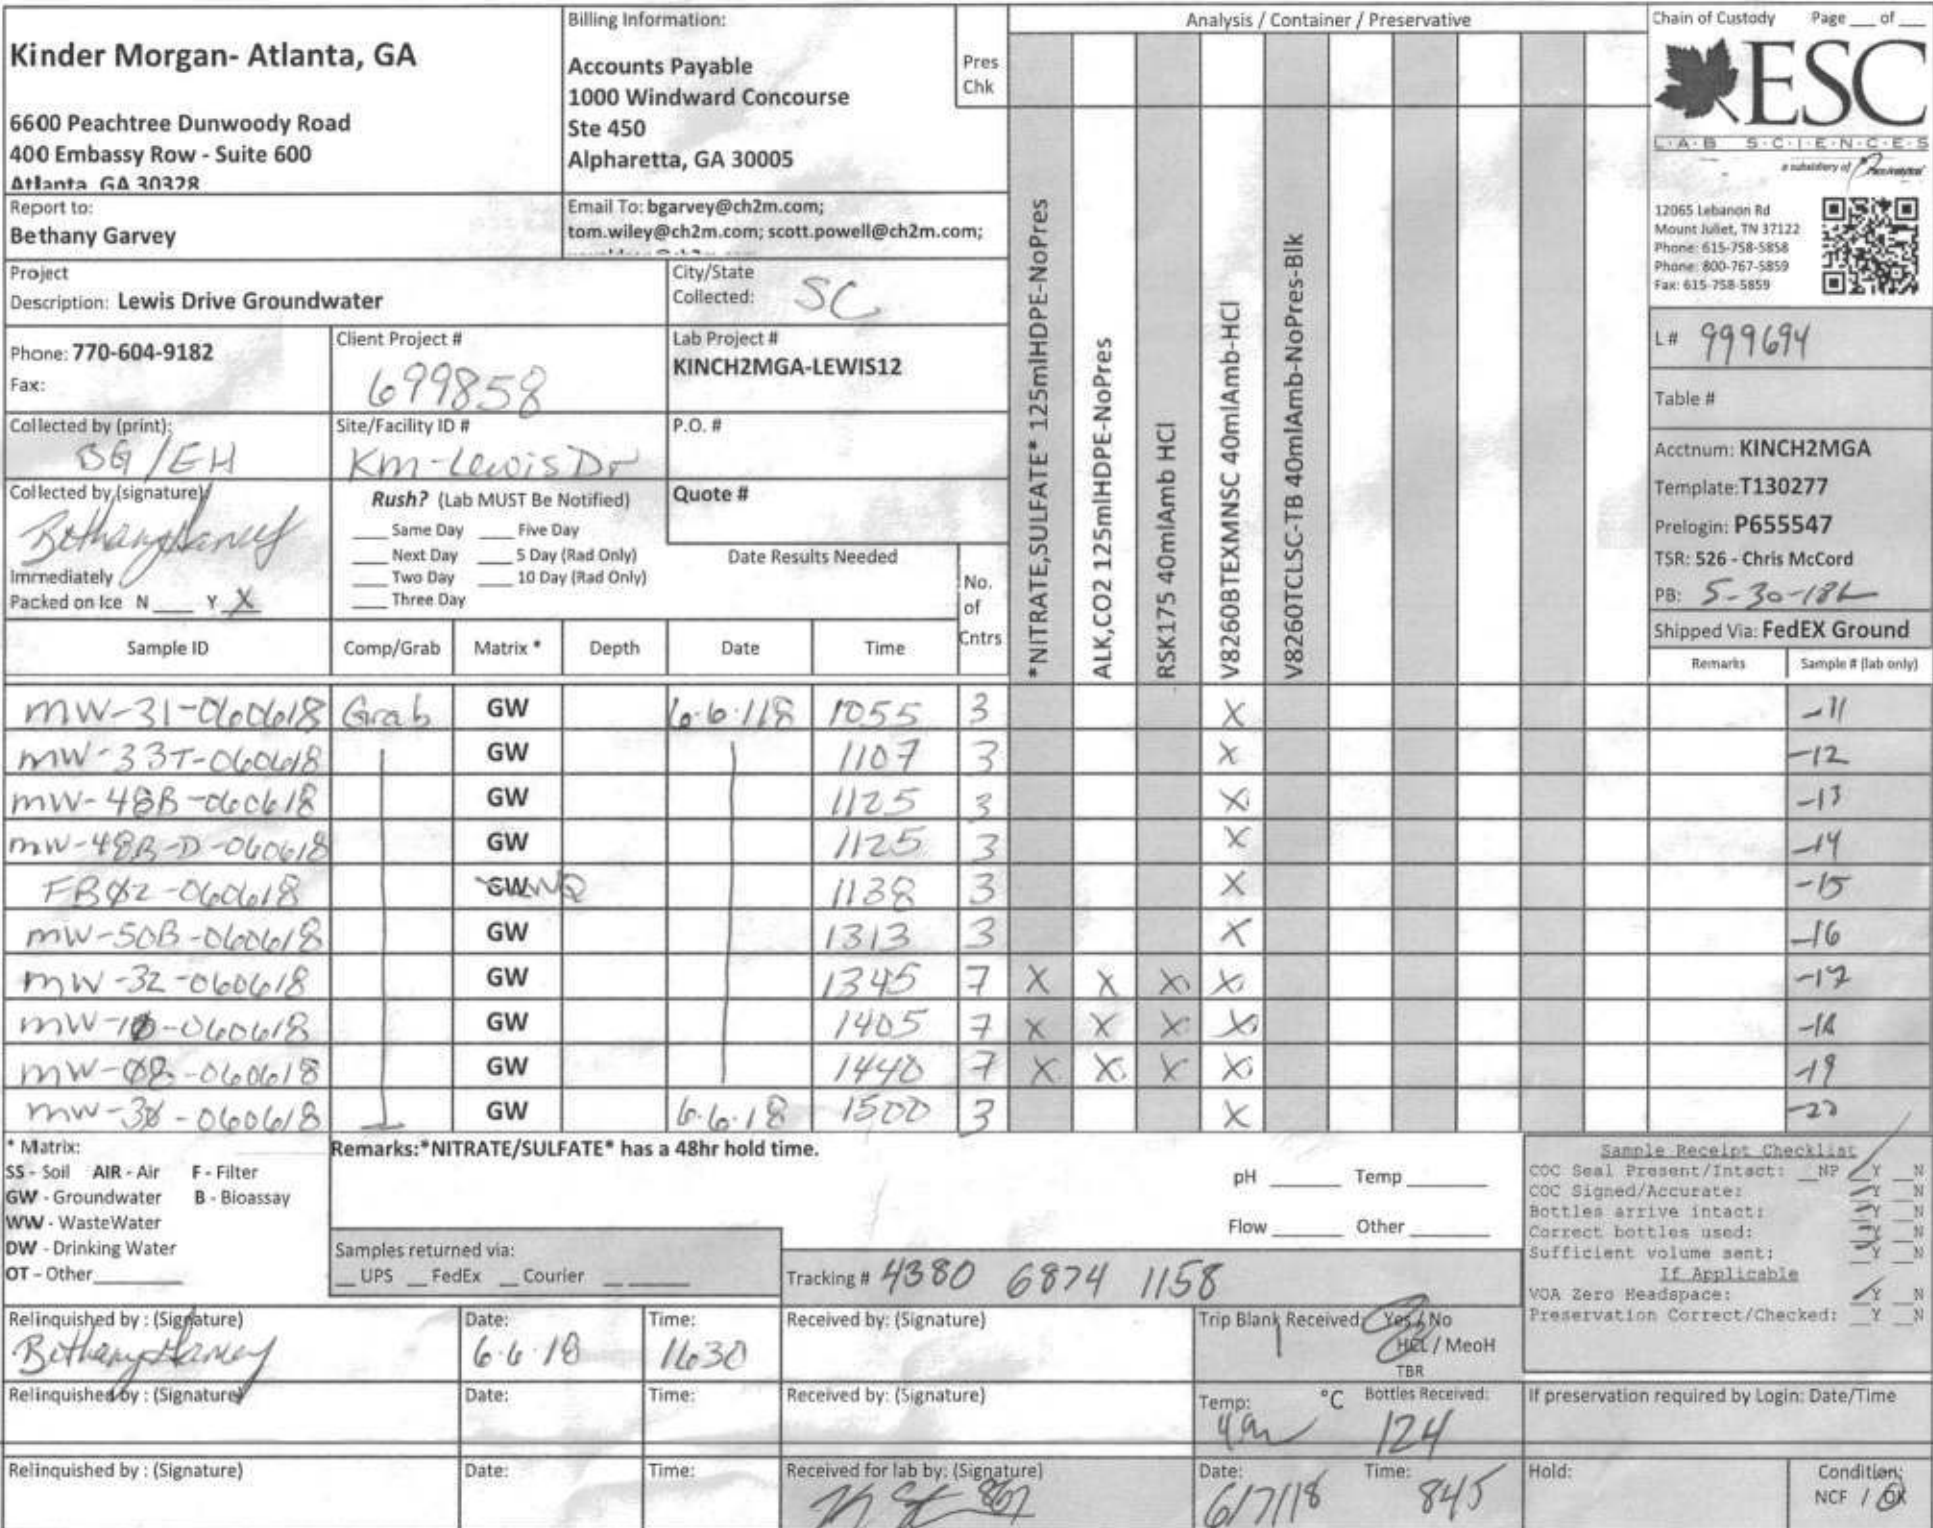 Kinder Morgan- Atlanta, GA
6600 Peachtree Dunwoody Road
400 Embassy Row - Suite 600
Atlanta GA 30328
Billing Information:
Accounts Payable
1000 Windward Concourse
Ste 450
Alpharetta, GA 30005
Pres
Chk
Analysis / Container / Preservative
Chain of Custody Page ___ of ___
ESC
L·A·B S·C·I·E·N·C·E·S
a subsidiary of
12065 Lebanon Rd
Mount Juliet, TN 37122
Phone: 615-758-5858
Phone: 800-767-5859
Fax: 615-758-5859
Report to:
Bethany Garvey
Email To: bgarvey@ch2m.com;
tom.wiley@ch2m.com; scott.powell@ch2m.com;
Project
Description: Lewis Drive Groundwater
City/State
Collected: SC
Phone: 770-604-9182
Fax:
Client Project #
699858
Lab Project #
KINCH2MGA-LEWIS12
Collected by (print):
BG/EH
Site/Facility ID #
Km-Lewis Dr
P.O. #
Collected by (signature):
Bethany Garvey
Immediately
Packed on Ice N ___ Y X
Rush? (Lab MUST Be Notified)
___ Same Day ___ Five Day
___ Next Day ___ 5 Day (Rad Only)
___ Two Day ___ 10 Day (Rad Only)
___ Three Day
Quote #
Date Results Needed
No.
of
Cntrs
*NITRATE,SULFATE* 125mlHDPE-NoPres
ALK,CO2 125mlHDPE-NoPres
RSK175 40mlAmb HCl
V8260BTEXMNSC 40mlAmb-HCl
V8260TCLSC-TB 40mlAmb-NoPres-Blk
L# 999694
Table #
Acctnum: KINCH2MGA
Template: T130277
Prelogin: P655547
TSR: 526 - Chris McCord
PB: 5-30-18
Shipped Via: FedEX Ground
Sample ID Comp/Grab Matrix * Depth Date Time Remarks Sample # (lab only)
MW-31-060618 Grab GW 6.6.18 1055 3 X -11
MW-33T-060618 GW 1107 3 X -12
MW-48B-060618 GW 1125 3 X -13
MW-48B-D-060618 GW 1125 3 X -14
FB02-060618 GW WQ 1138 3 X -15
MW-50B-060618 GW 1313 3 X -16
MW-32-060618 GW 1345 7 X X X X -17
MW-10-060618 GW 1405 7 X X X X -18
MW-08-060618 GW 1440 7 X X X X -19
MW-30-060618 GW 6.6.18 1500 3 X -20
* Matrix:
SS - Soil AIR - Air F - Filter
GW - Groundwater B - Bioassay
WW - WasteWater
DW - Drinking Water
OT - Other
Remarks:*NITRATE/SULFATE* has a 48hr hold time.
pH ___ Temp ___
Flow ___ Other ___
Samples returned via:
__ UPS __ FedEx __ Courier __
Tracking # 4380 6874 1158
Sample Receipt Checklist
COC Seal Present/Intact: __NP Y N
COC Signed/Accurate: Y N
Bottles arrive intact: Y N
Correct bottles used: Y N
Sufficient volume sent: Y N
If Applicable
VOA Zero Headspace: Y N
Preservation Correct/Checked: Y N
Relinquished by : (Signature)
Bethany Garvey
Date:
6.6.18
Time:
1630
Received by: (Signature)
Trip Blank Received: Yes / No
1
HCL / MeoH
TBR
Relinquished by : (Signature)
Date:
Time:
Received by: (Signature)
Temp: °C
Bottles Received:
124
If preservation required by Login: Date/Time
Relinquished by : (Signature)
Date:
Time:
Received for lab by: (Signature)
Date:
6/7/18
Time:
845
Hold:
Condition:
NCF / OK